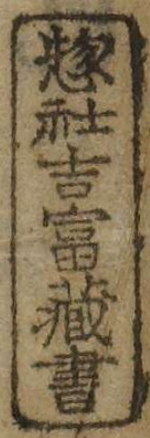 惣社吉富藏書